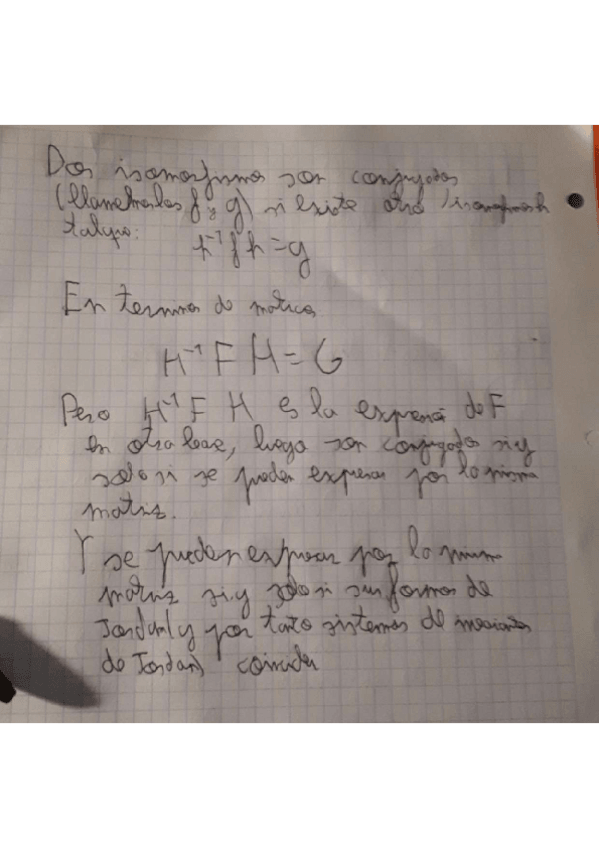 Dos isomorfismos son conjugados
(llamemoslos f y g) si existe otro isomorfismo h
tal que:
h⁻¹fh=g
En terminos de matrices
H⁻¹FH=G
Pero H⁻¹FH es la expresión de F
en otra base, luego son conjugados si y
solo si se pueden expresar por la misma
matriz.
Y se pueden expresar por la misma
matriz si y solo si sus formas de
Jordan (y por tanto sistemas de invariantes
de Jordan) coinciden